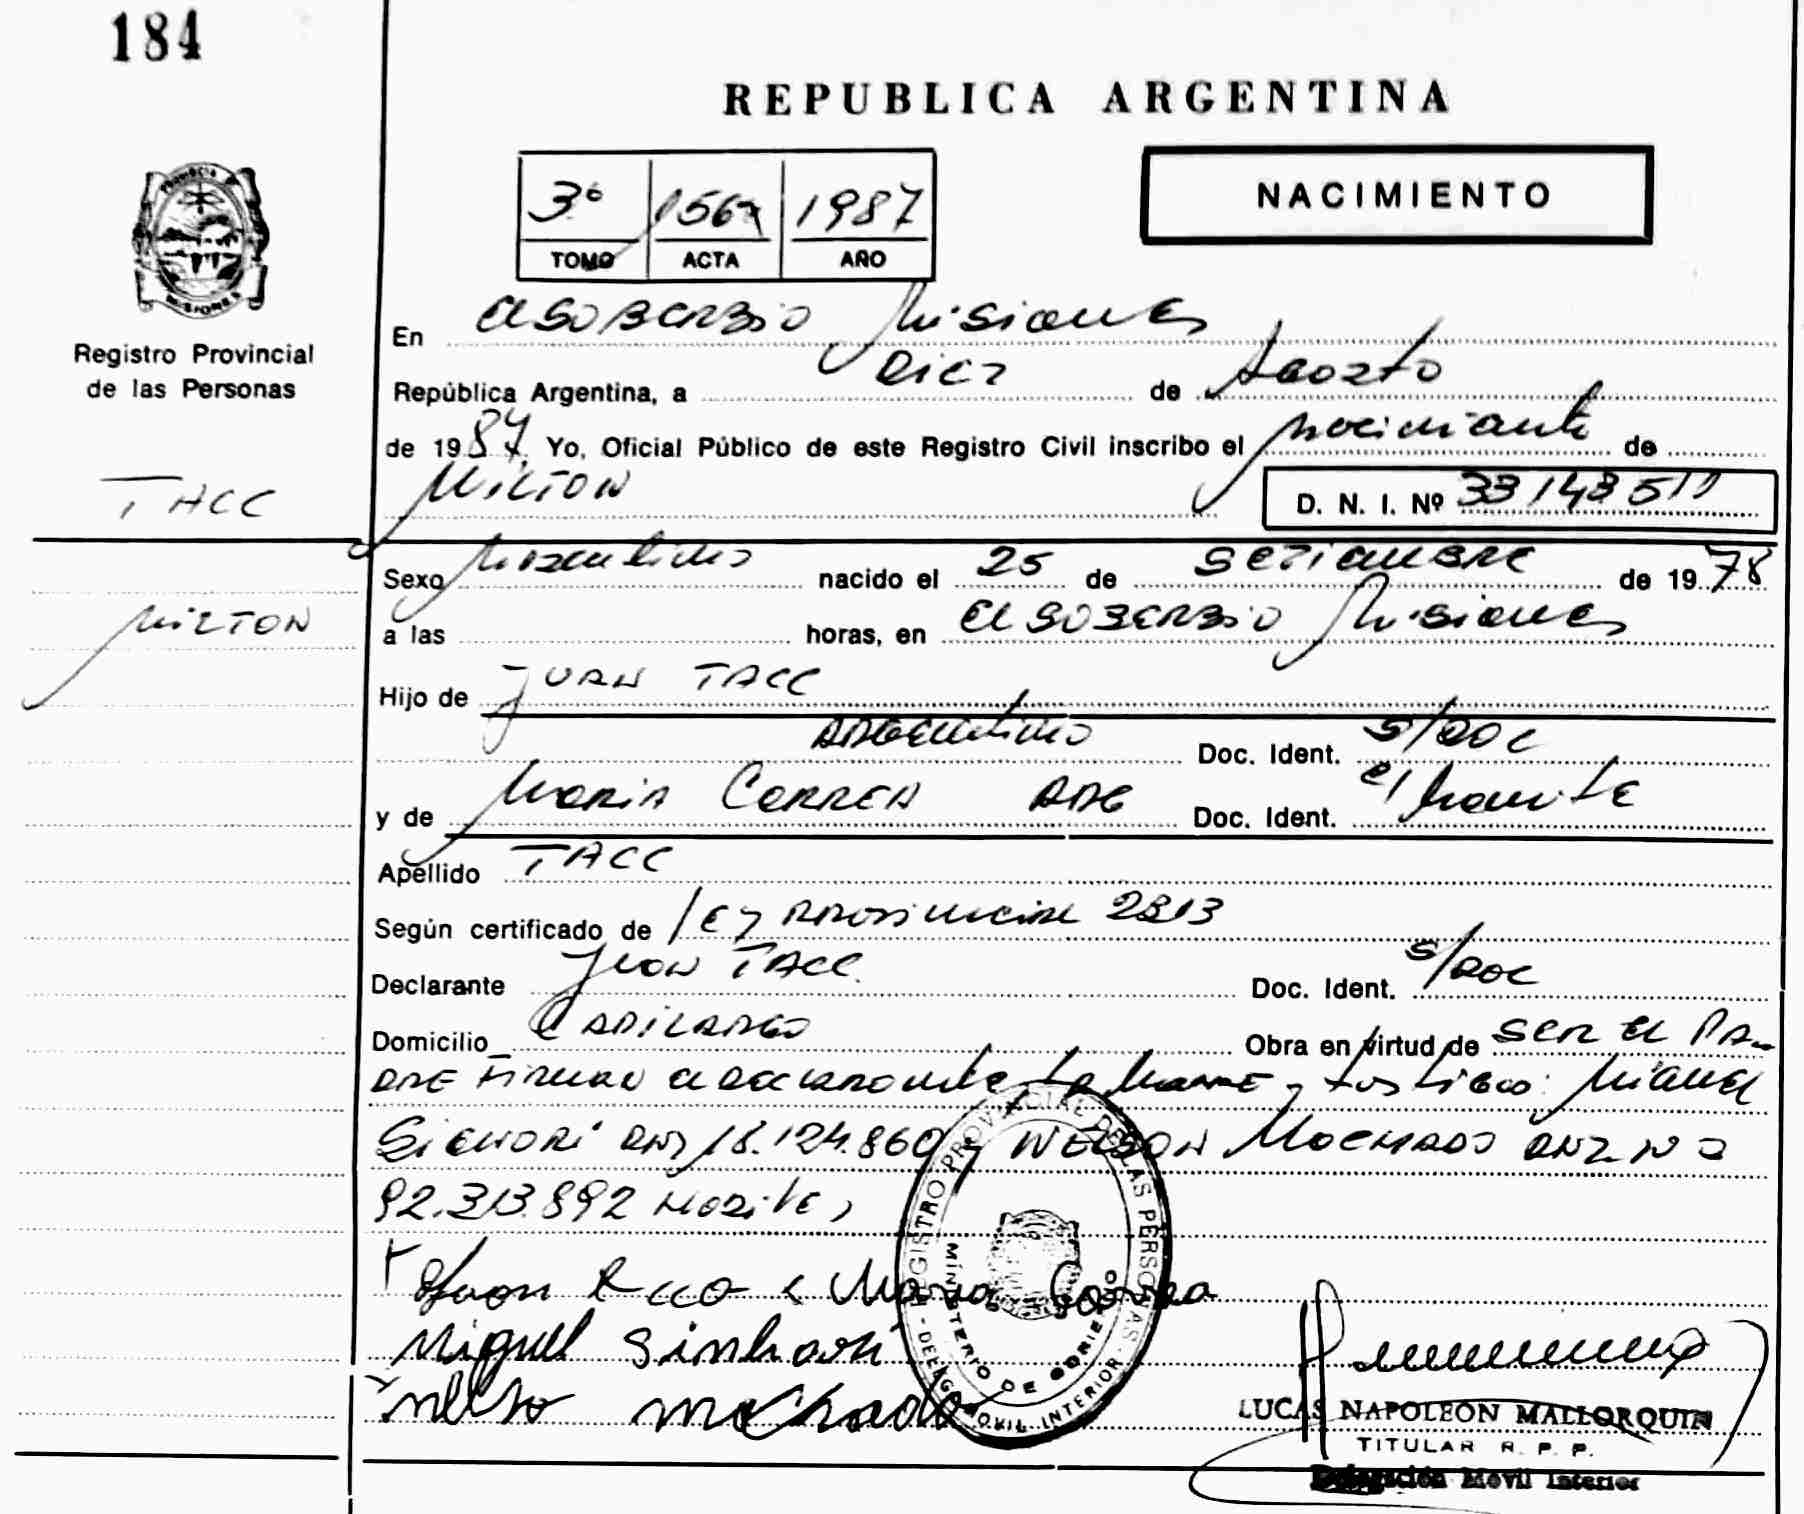 184
REPUBLICA ARGENTINA
NACIMIENTO
3º 1567 1987
TOMO ACTA AÑO
PROVINCIA DE MISIONES
Registro Provincial
de las Personas
En El SOBERBIO Misiones
República Argentina, a Diez de Agosto
de 1987. Yo, Oficial Público de este Registro Civil inscribo el nacimiento de
MILTON
D. N. I. Nº 33143511
TACC
MILTON
Sexo Masculino nacido el 25 de SETIEMBRE de 1978
a las horas, en El SOBERBIO Misiones
Hijo de JUAN TACC
ARGENTINO Doc. Ident. S/DOC
y de MARIA CORREA ARG Doc. Ident. el tramite
Apellido TACC
Según certificado de ley PROVINCIAL 2813
Declarante Juan TACC Doc. Ident. S/DOC
Domicilio Obra en virtud de SER EL PA-
DRE FIRMAN el DECLARANTE La MADRE y testigos: Miguel
DNI 18.124.860 y NELSON MACHADO DNI Nº
92.313.892
Juan María Correa
Miguel
Machado
REGISTRO PROVINCIAL DE LAS PERSONAS
MINISTERIO DE GOBIERNO
- DELEG. MOVIL INTERIOR -
LUCAS NAPOLEON MALLORQUIN
TITULAR R. P. P.
Delegación Movil Interior